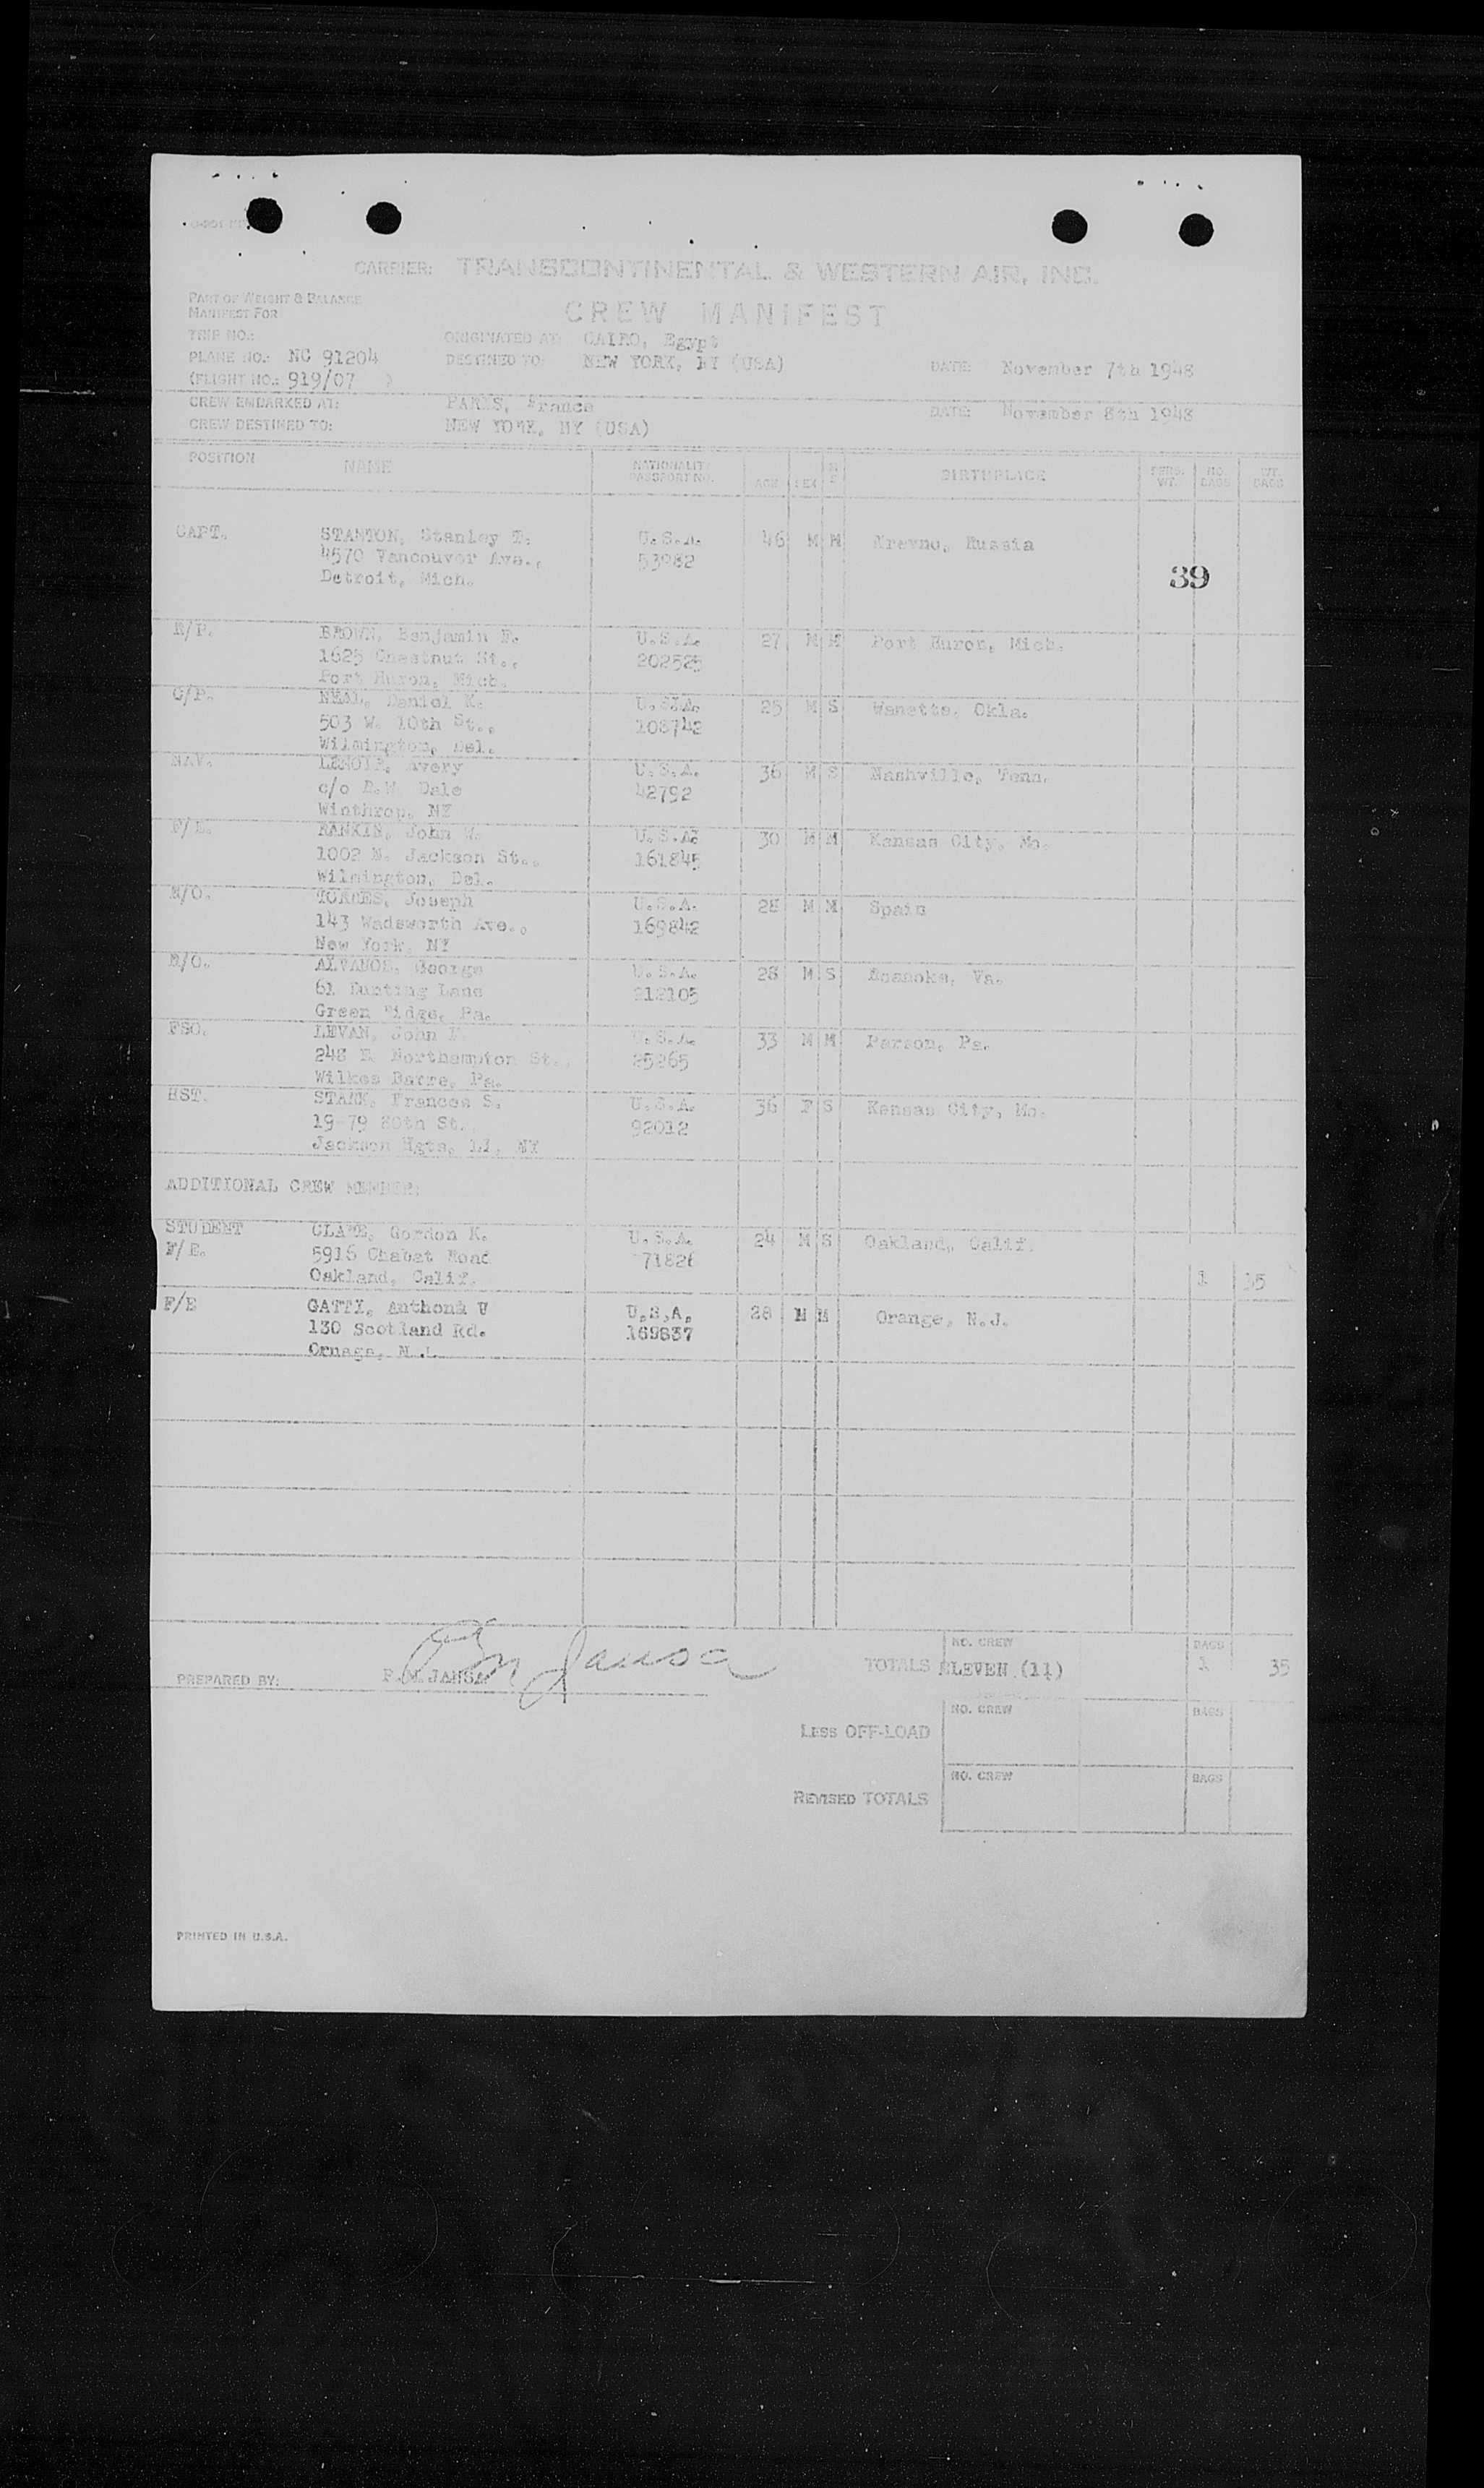 CARRIER: TRANSCONTINENTAL & WESTERN AIR, INC.
PART OF WEIGHT & BALANCE
MANIFEST FOR
CREW MANIFEST
TRIP NO.:
ORIGINATED AT: CAIRO, Egypt
PLANE NO.: NC 91204
DESTINED TO: NEW YORK, NY (USA)
DATE: November 7th 1948
(FLIGHT NO.: 919/07 )
CREW EMBARKED AT: PARIS, France
DATE: November 8th 1948
CREW DESTINED TO: NEW YORK, NY (USA)
POSITION NAME NATIONALITY PASSPORT NO. AGE SEX BIRTHPLACE PERS. WT. NO. BAGS WT. BAGS
CAPT. STANTON, Stanley T. U.S.A. 46 M M Russia
4570 Vancouver Ave., 53982
Detroit, Mich.
39
BROWN, Benjamin F. U.S.A. 27 M M Port Huron, Mich.
1625 Chestnut St., 202525
Port Huron, Mich.
NEAL, Daniel K. U.S.A. 25 M S Wanette, Okla.
503 W. 10th St., 108742
Wilmington, Del.
NAV. LENOIR, Avery U.S.A. 36 M S Nashville, Tenn.
c/o Dale 42792
Winthrop,
RANKIN, John W. U.S.A. 30 M M Kansas City, Mo.
1002 N. Jackson St., 161845
Wilmington, Del.
TORRES, Joseph U.S.A. 28 M M Spain
143 Wadsworth Ave., 169842
New York, NY
George U.S.A. 28 M S Roanoke, Va.
61 Bunting Lane 212105
Green Ridge, Pa.
FSO. LEVAN, John U.S.A. 33 M M Parson, Pa.
248 Northampton St., 25265
Wilkes Barre, Pa.
HST. STARK, Frances S. U.S.A. 36 F S Kansas City, Mo.
19-79 80th St. 92012
Jackson Hgts, LI, NY
ADDITIONAL CREW MEMBER:
STUDENT Gordon K. U.S.A. 24 M S Oakland, Calif.
F/E. 5916 Chabot Road
Oakland, Calif. 1 35
F/E GATTI, U.S.A. 28 M M Orange, N.J.
130 Scotland Rd. 169837
Ornage, N.J.
NO. CREW BAGS
PREPARED BY: JANSA TOTALS ELEVEN (11) 1 35
NO. CREW BAGS
LESS OFF-LOAD
NO. CREW BAGS
REVISED TOTALS
PRINTED IN U.S.A.